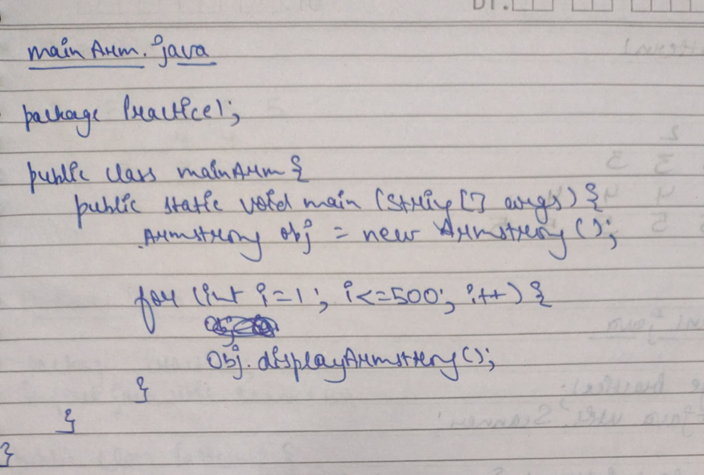 mainArm.java
package Practice1;
public class mainArm {
public static void main (String [] args) {
Armstrong obj = new Armstrong ();
for (int i=1; i<=500; i++) {
obj.displayArmstrong();
}
}
}